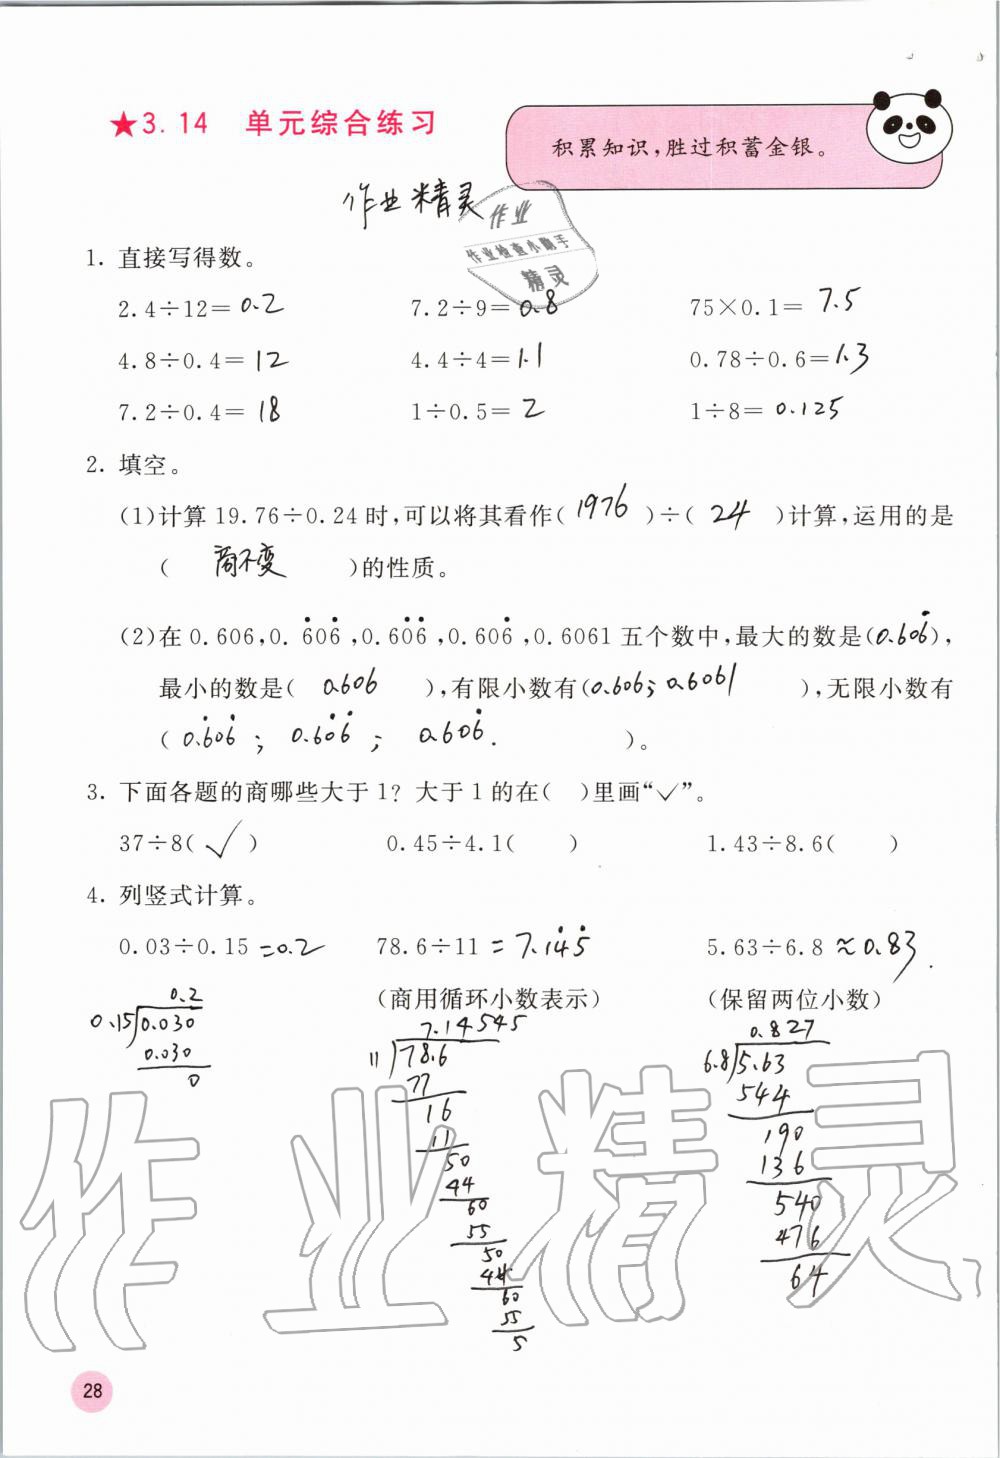 ★3.14 单元综合练习
积累知识,胜过积蓄金银。
作业精灵
作业
作业检查小助手
精灵
1. 直接写得数。
2.4÷12=0.2 7.2÷9=0.8 75×0.1=7.5
4.8÷0.4=12 4.4÷4=1.1 0.78÷0.6=1.3
7.2÷0.4=18 1÷0.5=2 1÷8=0.125
2. 填空。
(1)计算19.76÷0.24时,可以将其看作(1976)÷(24)计算,运用的是
(商不变)的性质。
(2)在0.606,0.6̇06̇,0.60̇6̇,0.606̇,0.6061五个数中,最大的数是(0.606̇),
最小的数是(0.606),有限小数有(0.606;0.6061),无限小数有
(0.6̇06̇; 0.60̇6̇; 0.606̇.)。
3. 下面各题的商哪些大于1?大于1的在( )里画“✓”。
37÷8(✓) 0.45÷4.1( ) 1.43÷8.6( )
4. 列竖式计算。
0.03÷0.15=0.2 78.6÷11=7.14̇5̇ 5.63÷6.8≈0.83.
(商用循环小数表示) (保留两位小数)
0.2
0.15 0.030
0.030
0
7.14545
11 78.6
77
16
11
50
44
60
55
50
44
60
55
5
0.827
6.8 5.63
544
190
136
540
476
64
作业精灵
28